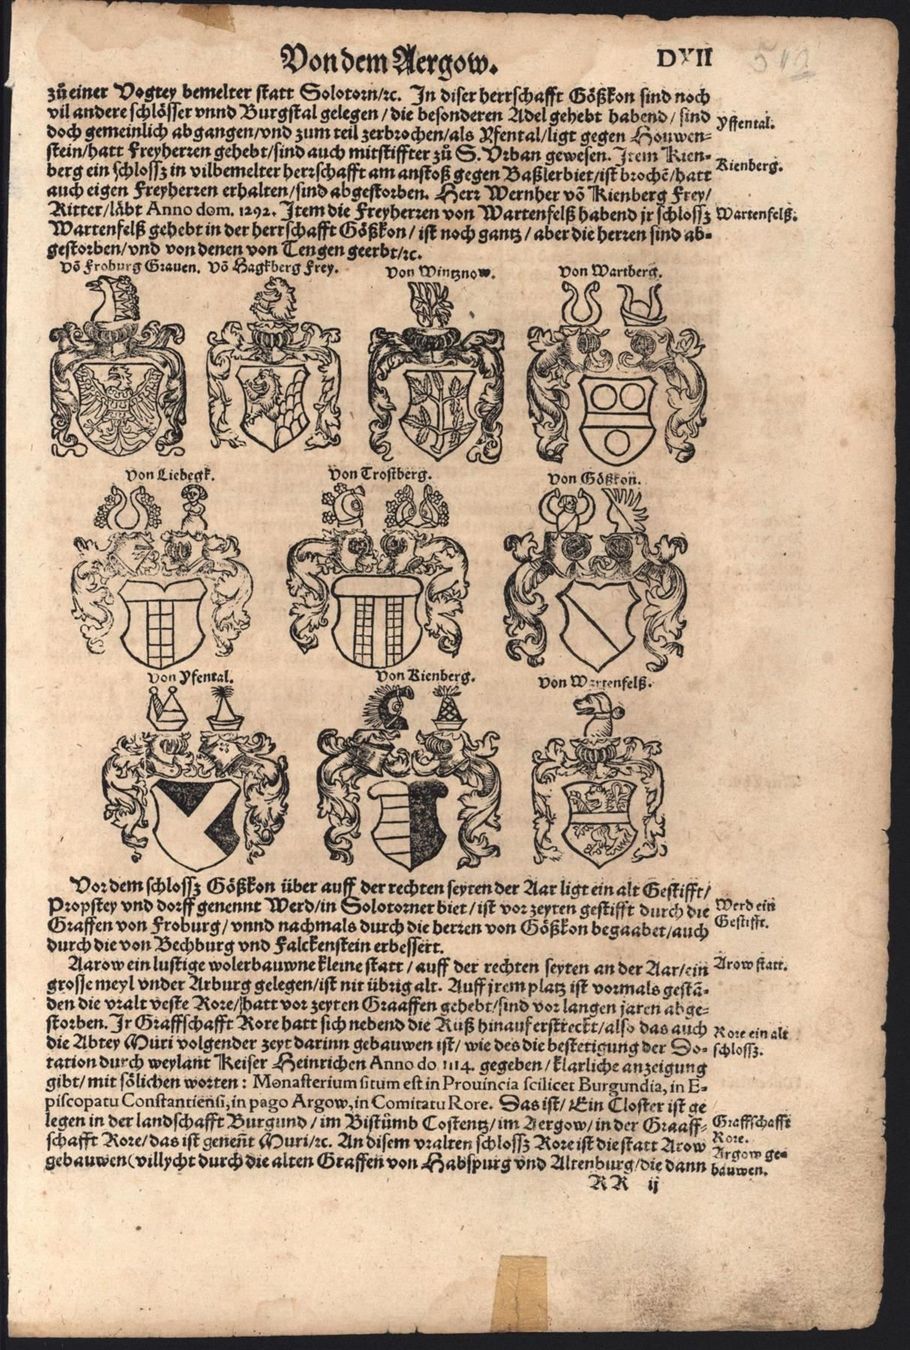 Von dem Aergow.
DXII
512
zů einer Vogtey bemelter statt Solotorn/ꝛc. In diser herrschafft Gößkon sind noch
vil andere schlösser vnnd Burgstal gelegen/die besonderen Adel gehebt habend/sind
doch gemeinlich abgangen/vnd zum teil zerbrochen/als Yfental/ligt gegen Houwen-
stein/hatt Freyherren gehebt/sind auch mitstiffter zů S. Vrban gewesen. Item Kien-
berg ein schlossz in vilbemelter herrschafft am anstoß gegen Baßlerbiet/ist brochē/hatt
auch eigen Freyherren erhalten/sind abgestorben. Herr Wernher vō Kienberg Frey/
Ritter/läbt Anno dom. 1292. Item die Freyherren von Wartenfelß habend jr schlossz
Wartenfelß gehebt in der herrschafft Gößkon/ist noch gantz/aber die herren sind ab-
gestorben/vnd von denen von Tengen geerbt/ꝛc.
Yffental.
Kienberg.
Wartenfelß.
vō Froburg Grauen. vō Hagkberg Frey.
von Wintznow.
von Wartberg.
von Liebegk.
von Trostberg.
von Gößkon.
von Yfental.
von Kienberg.
von Wartenfelß.
Vor dem schlossz Gößkon über auff der rechten seyten der Aar ligt ein alt Gestifft/
Propstey vnd dorff genennt Werd/in Solotorner biet/ist vor zeyten gestifft durch die
Graffen von Froburg/vnnd nachmals durch die herren von Gößkon begaabet/auch
durch die von Bechburg vnd Falckenstein erbessert.
Werd ein
Gestifft.
Aarow ein lustige wolerbauwne kleine statt/auff der rechten seyten an der Aar/ein
grosse meyl vnder Arburg gelegen/ist nit übrig alt. Auff jrem platz ist vormals gestā-
den die vralt veste Rore/hatt vor zeyten Graaffen gehebt/sind vor langen jaren abge-
storben. Ir Graffschafft Rore hatt sich nebend die Rüß hinauf erstreckt/also das auch
die Abtey Muri volgender zeyt darinn gebauwen ist/wie des die bestetigung der Do-
tation durch weylant Keiser Heinrichen Anno do. 1114. gegeben/klarliche anzeigung
gibt/mit sölichen worten: Monasterium situm est in Prouincia scilicet Burgundia, in E-
piscopatu Constantiensi, in pago Argow, in Comitatu Rore. Das ist/Ein Closter ist ge
legen in der landschafft Burgund/im Bistůmb Costentz/im Aergow/in der Graaff-
schafft Rore/das ist genent Muri/ꝛc. An disem vralten schlossz Rore ist die statt Arow
gebauwen(villycht durch die alten Graffen von Habspurg vnd Altenburg/die dann
Arow statt.
Rore ein alt
schlossz.
Graffschafft
Rore.
Argow ge-
bauwen.
RR ij